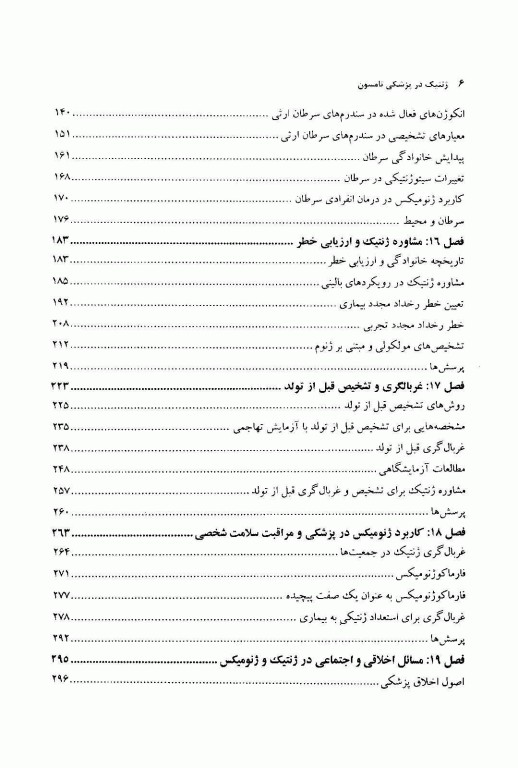 ۶ ژنتیک در پزشکی تامسون
انکوژن‌های فعال شده در سندرم‌های سرطان ارثی ........ ۱۴۰
معیارهای تشخیصی در سندرم‌های سرطان ارثی ........ ۱۵۱
پیدایش خانوادگی سرطان ........ ۱۶۱
تغییرات سیتوژنتیکی در سرطان ........ ۱۶۸
کاربرد ژنومیکس در درمان انفرادی سرطان ........ ۱۷۰
سرطان و محیط ........ ۱۷۶
فصل ۱۶: مشاوره ژنتیک و ارزیابی خطر ........ ۱۸۳
تاریخچه خانوادگی و ارزیابی خطر ........ ۱۸۳
مشاوره ژنتیک در رویکردهای بالینی ........ ۱۸۵
تعیین خطر رخداد مجدد بیماری ........ ۱۹۲
خطر رخداد مجدد تجربی ........ ۲۰۸
تشخیص‌های مولکولی و مبتنی بر ژنوم ........ ۲۱۲
پرسش‌ها ........ ۲۱۹
فصل ۱۷: غربالگری و تشخیص قبل از تولد ........ ۲۲۳
روش‌های تشخیص قبل از تولد ........ ۲۲۵
مشخصه‌هایی برای تشخیص قبل از تولد با آزمایش تهاجمی ........ ۲۳۵
غربال‌گری قبل از تولد ........ ۲۳۸
مطالعات آزمایشگاهی ........ ۲۴۸
مشاوره ژنتیک برای تشخیص و غربال‌گری قبل از تولد ........ ۲۵۷
پرسش‌ها ........ ۲۶۰
فصل ۱۸: کاربرد ژنومیکس در پزشکی و مراقبت سلامت شخصی ........ ۲۶۳
غربال‌گری ژنتیک در جمعیت‌ها ........ ۲۶۴
فارماکوژنومیکس ........ ۲۷۱
فارماکوژنومیکس به عنوان یک صفت پیچیده ........ ۲۷۷
غربال‌گری برای استعداد ژنتیکی به بیماری ........ ۲۷۸
پرسش‌ها ........ ۲۹۲
فصل ۱۹: مسائل اخلاقی و اجتماعی در ژنتیک و ژنومیکس ........ ۲۹۵
اصول اخلاق پزشکی ........ ۲۹۶